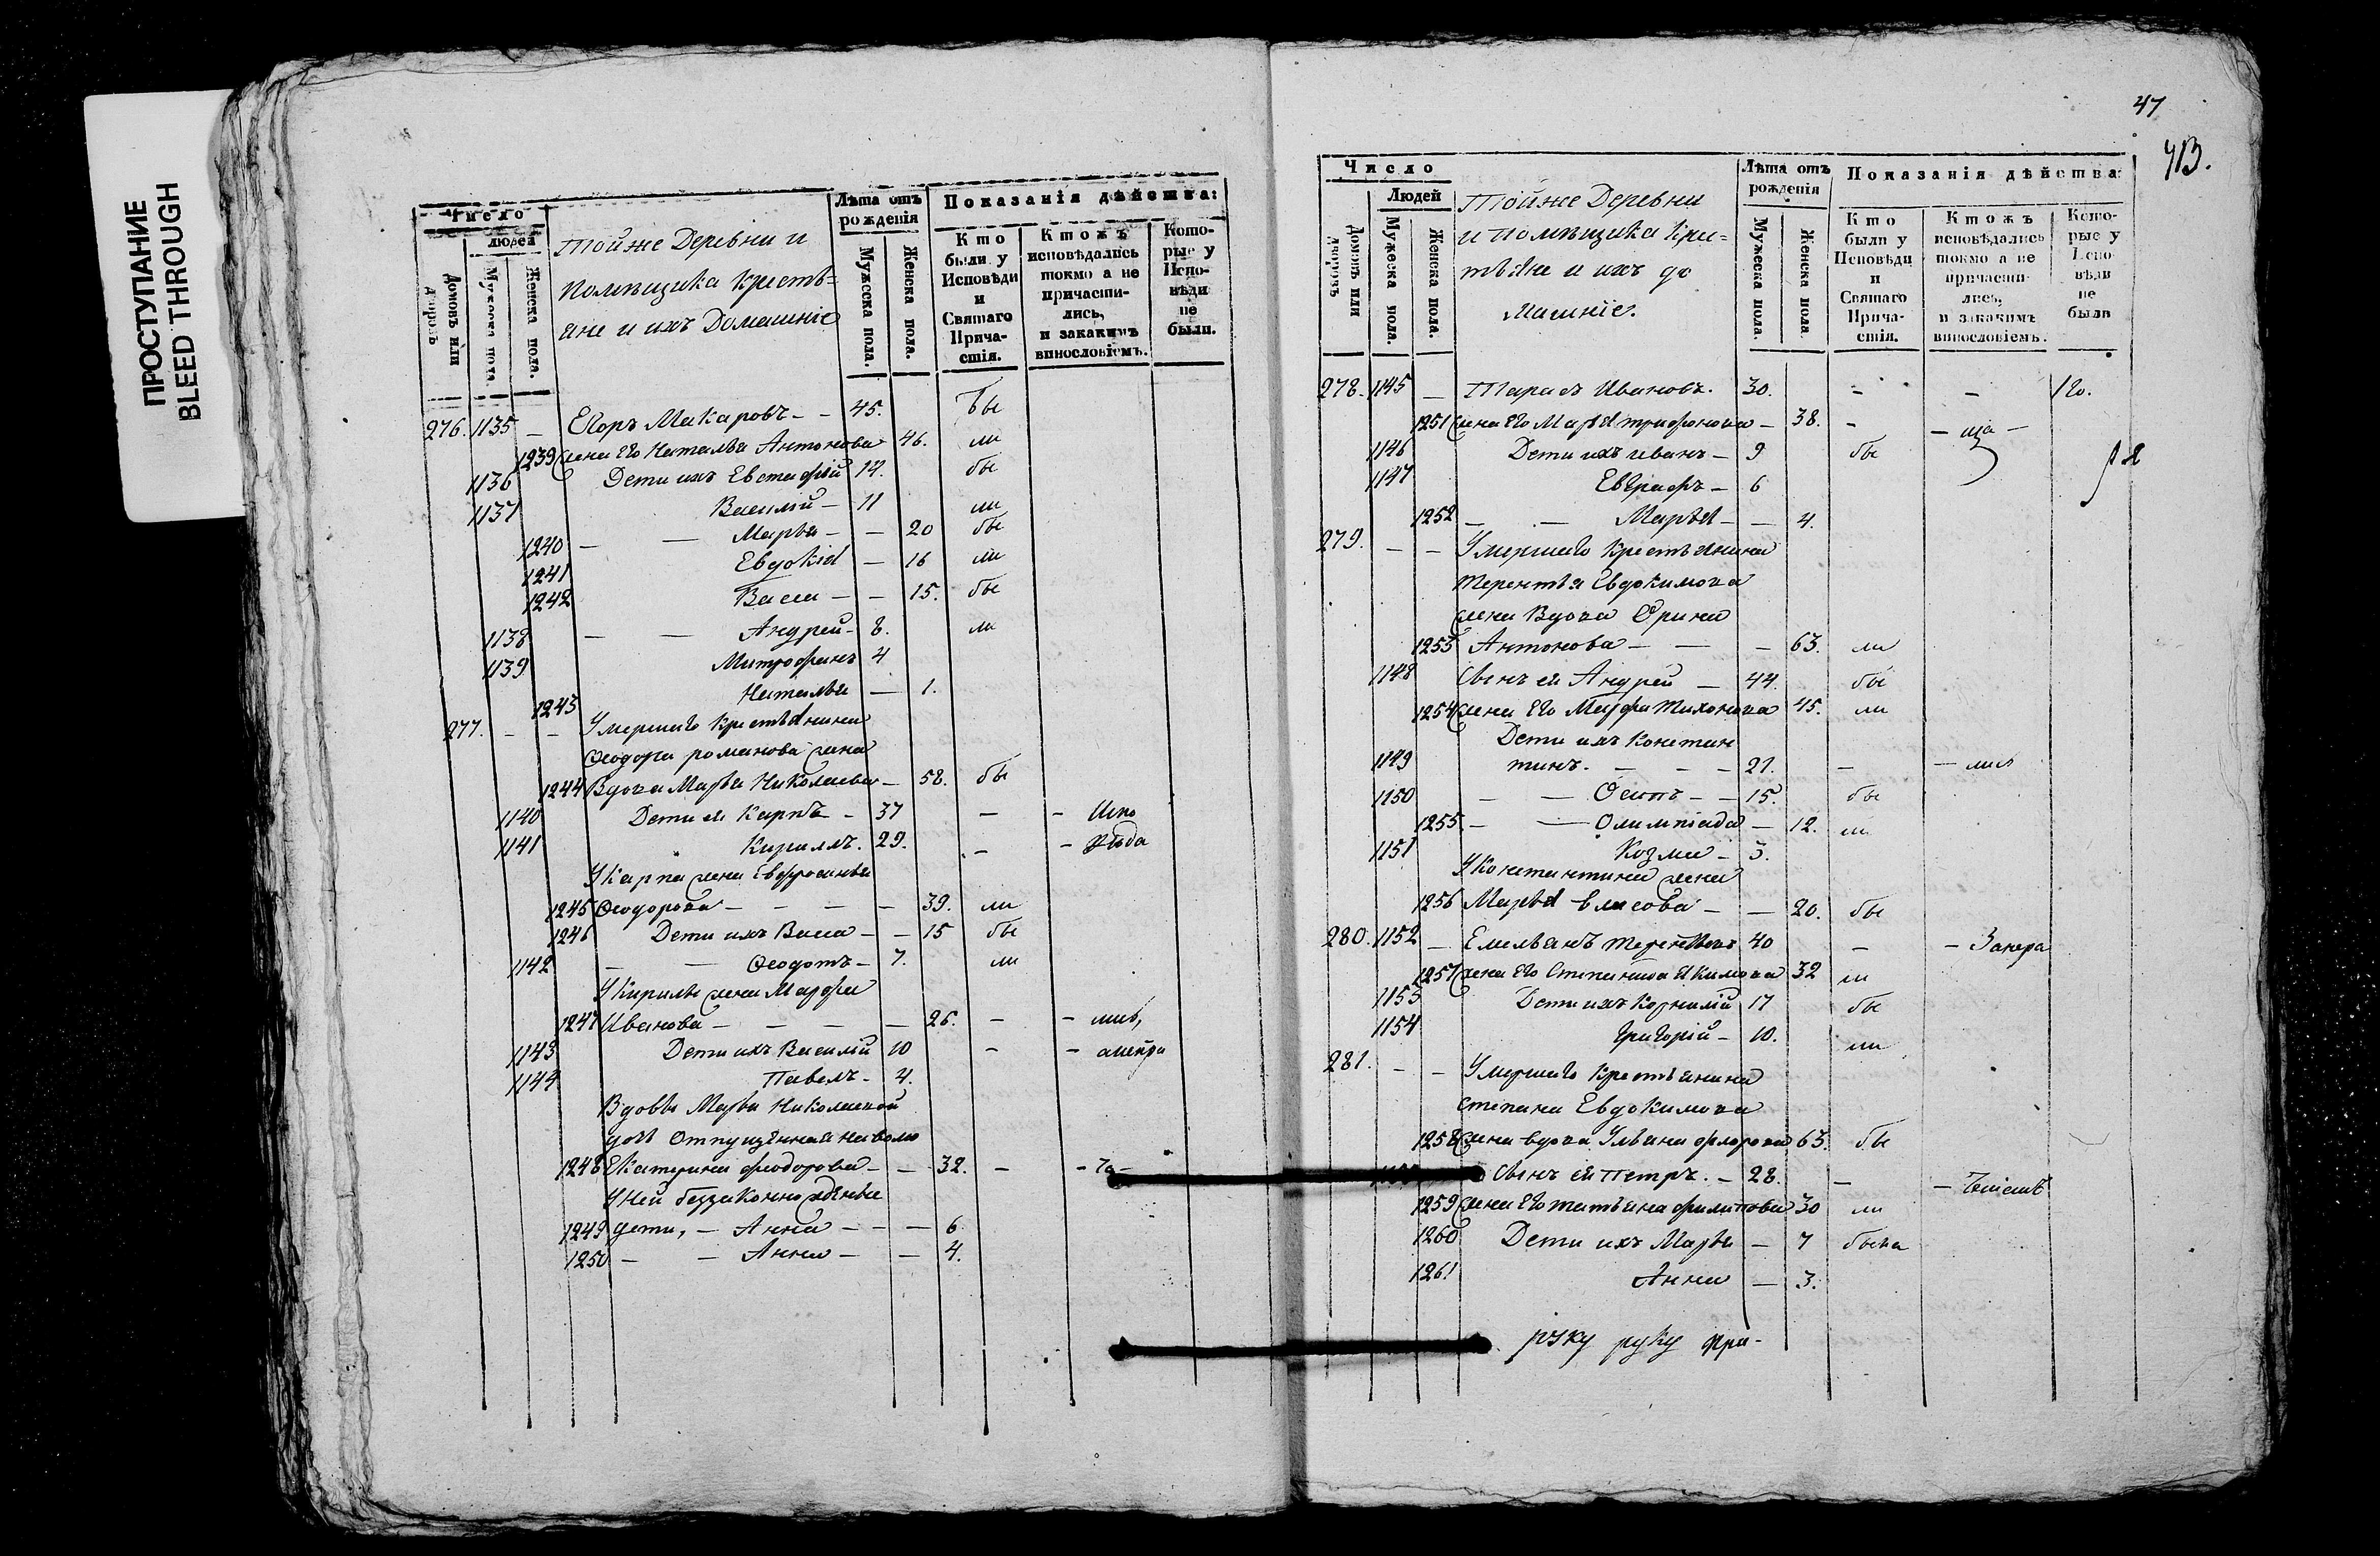 ПРОСТУПАНИЕ
BLEED THROUGH
Число
людей
Домовъ или дворовъ
Мужеска пола.
Женска пола.
Тойже Деревни и
помѣщика кресть-
яне и ихъ Домашніе
Лѣта отъ рожденія
Мужеска пола.
Женска пола.
Показанія дѣйства:
Кто были у Исповѣди и Святаго Причастія.
Ктожъ исповѣдались токмо а не причастились, и закакимъ винословіемъ.
Которые у Исповѣди не были.
276. 1135 – Егоръ Макаровъ – – 45. бы
1239 жена Его Наталья Антонова 46. ли
1136 Дети ихъ Евстафій 14. бы
1137 Василій – 11 ли
1240 – – Марья – – 20 бы
1241 Евдокія – 16 ли
1242 Васса – – 15. бы
1138 – – Андрей – 8. ли
1139 Митрофанъ 4
1243 Наталья – 1.
277. – – Умершаго Крестьянина
Ѳеодора романова жена
1244 Вдова Марья Николаева – 58. бы
1140 Дети ея Карпъ – 37 – –
1141 Кириллъ. 29. – –
У Карпа жена Евфросинья
1245 Ѳеодорова – – – – 39. ли
1246 Дети ихъ Васса – – 15 бы
1142 – – Ѳеодотъ – 7. ли
У Кирилы жена Марфа
1247 Иванова – – – – 26. – –
1143 Дети ихъ Василій 10 – –
1144 Павелъ – 4.
Вдовы Марьи Николаевой
дочь Отпущенная на волю
1248 Екатерина феодорова – – 32. – –
У Ней беззаконно
1249 дети, – Анна – – – 6
1250 – – Анна – – 4.
47
413.
Число
Людей
Домовъ или дворовъ
Мужеска пола.
Женска пола.
Тойже Деревни
и помѣщика Крес-
тьяне и ихъ до
машніе.
Лѣта отъ рожденія
Мужеска пола.
Женска пола
Показанія дѣйства:
Кто были у Исповѣди и Святаго Причастія.
Ктожъ исповѣдались токмо а не причастились, и закакимъ винословіемъ.
Которые у Исповѣди не были
278. 1145 – Тарасъ Ивановъ. 30. – –
1251 жена Его Марья трифонова – 38. –
1146 Дети ихъ иванъ – 9 бы
1147 Евграфъ – 6
1252 – – Марья – – 4.
279. – – Умершаго крестьянина
терентья Евдокимова
жена Вдова Ирина
1253 Антонова – – – 63. ли
1148 Сынъ ея Андрей – 44. бы
1254 жена Его Марфа Тихонова 45. ли
Дети ихъ Констан
1149 тинъ. – – – 21. – –
1150 – – Осипъ – – 15. бы
1255. – – Олимпіада – 12. ли
1151 Козма – 3.
У Константина жена
1256 Марья власова – – 20. бы
280. 1152 – Емельянъ терентьевъ 40 – –
1257 жена Его Степанида Якимова 32 ли
1153 Дети ихъ Корнилій 17 бы
1154 григорій – 10. ли
281. – – Умершаго Крестьянина
степана Евдокимова
1258 жена вдова Ульяна фролова 63. бы
Сынъ ея петръ. – 28. – –
1259 жена Его татьяна филипова 30 ли
1260 Дети ихъ Марья – 7 была
1261 Анна – 3.
руку при-